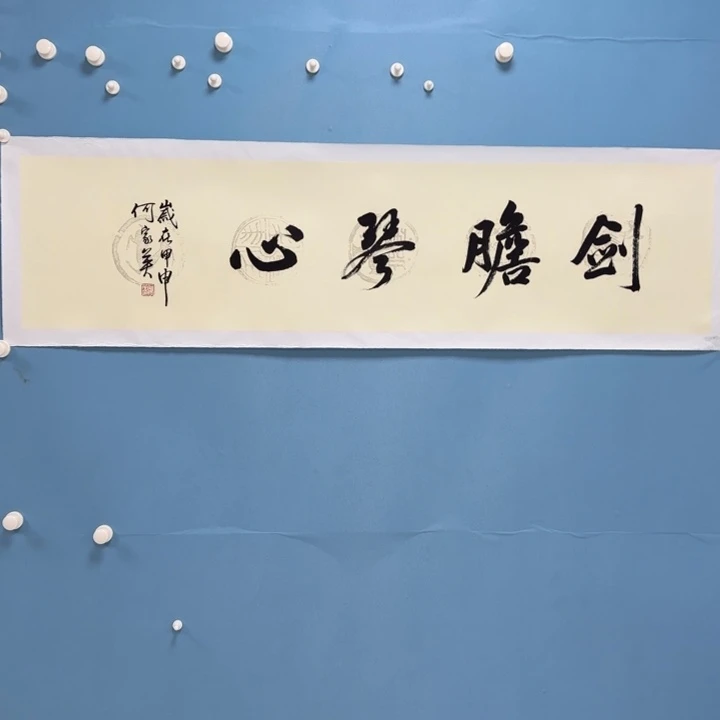 剑膽琴心
歲在甲申
何家英